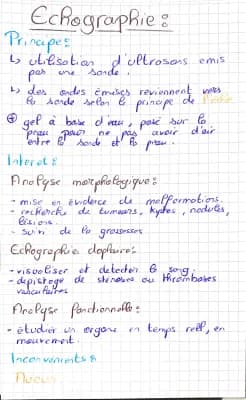 Echographie :
Principe :
↳ utilisation d'ultrasons emis
par une sonde.
↳ des ondes émises reviennent vers
la sonde selon le principe de l'echo
⊕ gel à base d'eau, posé sur la
peau pour ne pas avoir d'air
entre la sonde et la peau.
Interet :
Analyse morphologique :
- mise en évidence de malformations.
- recherche de tumeurs, kystes, nodules,
lésions.
- suivi de la grossesse
Echographie doplaire :
- visualiser et detecter le sang.
- depistage de stenoses ou thromboses
vasculaires
Analyse fonctionnelle :
- étudier un organe en temps reel, en
mouvement.
Inconvenients :
Aucun